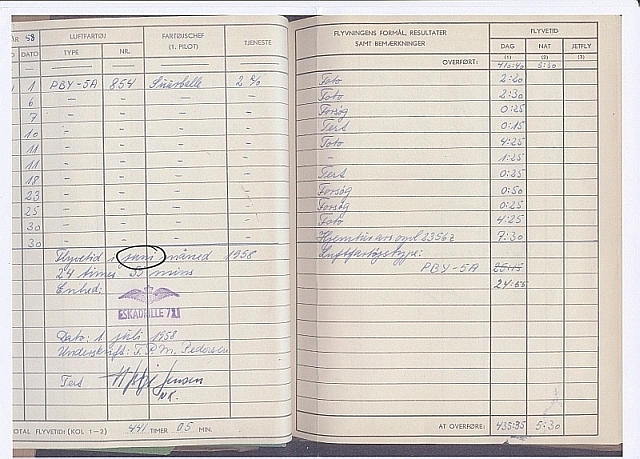 ÅR 58
LUFTFARTØJ
FARTØJSCHEF
(1. PILOT)
TJENESTE
DATO
TYPE
NR.
1 PBY-5A 854
6 - - - -
7 - - - -
10 - - - -
11 - - - -
11 - - - -
18 - - - -
23 - - - -
25 - - - -
30 - - - -
30 - - - -
Flyvetid i juni måned 1958
24 timer 55 mins
Enhed:
ESKADRILLE 721
Dato: 1 juli 1958
Underskrift: T.P.M. Pedersen
Tert
Jensen
TOTAL FLYVETID: (KOL 1-2) 441 TIMER 05 MIN.
FLYVNINGENS FORMÅL, RESULTATER
SAMT BEMÆRKNINGER
FLYVETID
DAG
NAT
JETFLY
(1)
(2)
(3)
OVERFØRT: 410:40 5:30
Foto 2:20
Foto 2:30
Forsøg 0:25
Tert 0:15
Foto 4:25
- 1:25
Tert 0:25
Forsøg 0:50
Forsøg 0:25
Foto 4:25
7:30
Luftfartøjstype:
PBY-5A 25:15
24:55
AT OVERFØRE: 435:35 5:30